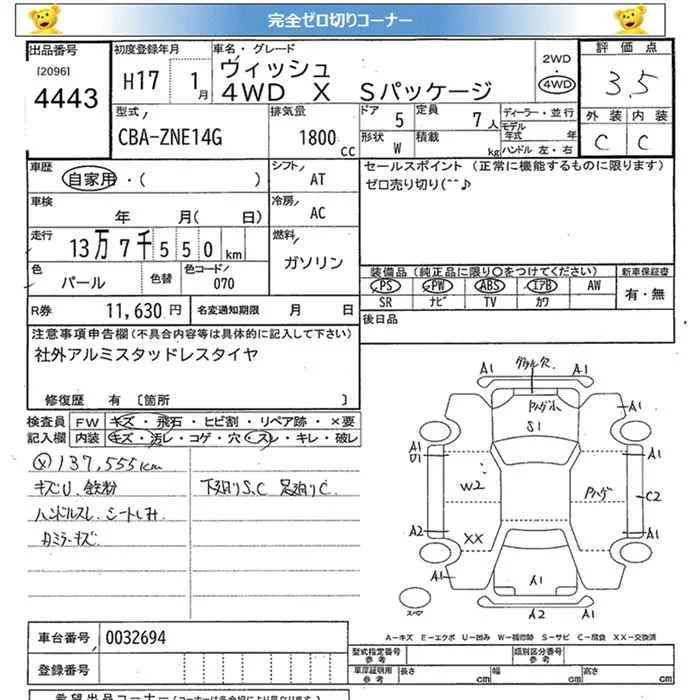 完全ゼロ切りコーナー
出品番号 初度登録年月 車名・グレード 評価点
[2096] 4443 H17 1月 ヴィッシュ 4WD X Sパッケージ 2WD 4WD 3.5
型式 排気量 ドア 5 定員 7人 ディーラー・並行 外装 内装
CBA-ZNE14G 1800cc 形状 W 積載 kg モデル年式 年 ハンドル 左・右 C C
車歴 シフト セールスポイント (正常に機能するものに限ります)
自家用・( ) AT ゼロ売り切り(^^♪
車検 冷房
年 月( 日) AC
走行 燃料
13万7千550km ガソリン
色 色替 色コード 装備品(純正品に限り○をつけてください) 新車保証書
パール 070 PS PW ABS エアB AW 有・無
SR ナビ TV カワ
R券 11,630円 名変通知期限 月 日 後日品
注意事項申告欄(不具合内容等は具体的に記入して下さい)
社外アルミスタッドレスタイヤ
修復歴 有 [箇所 ]
検査員 FW キズ・飛石・ヒビ割・リペア跡・×要
記入欄 内装 キズ・汚レ・コゲ・穴・スレ・キレ・破レ
137,555km
キズU 鉄粉 下廻りS.C 足廻りC
ハンドルスレ シートしみ
カミラーキズ
A1 A1
A1
S1
A1 A1
D1
W2 C2
A2 A1
XX
A1 A1
A1
スペア A2 A1
A−キズ E−エクボ U−凹み W−補修跡 S−サビ C−腐食 XX−交換済
車台番号 0032694
型式指定番号 参考 類別区分番号 参考
登録番号 車庫証明用 参考 長さ cm 幅 cm 高さ cm
希望出品コーナー